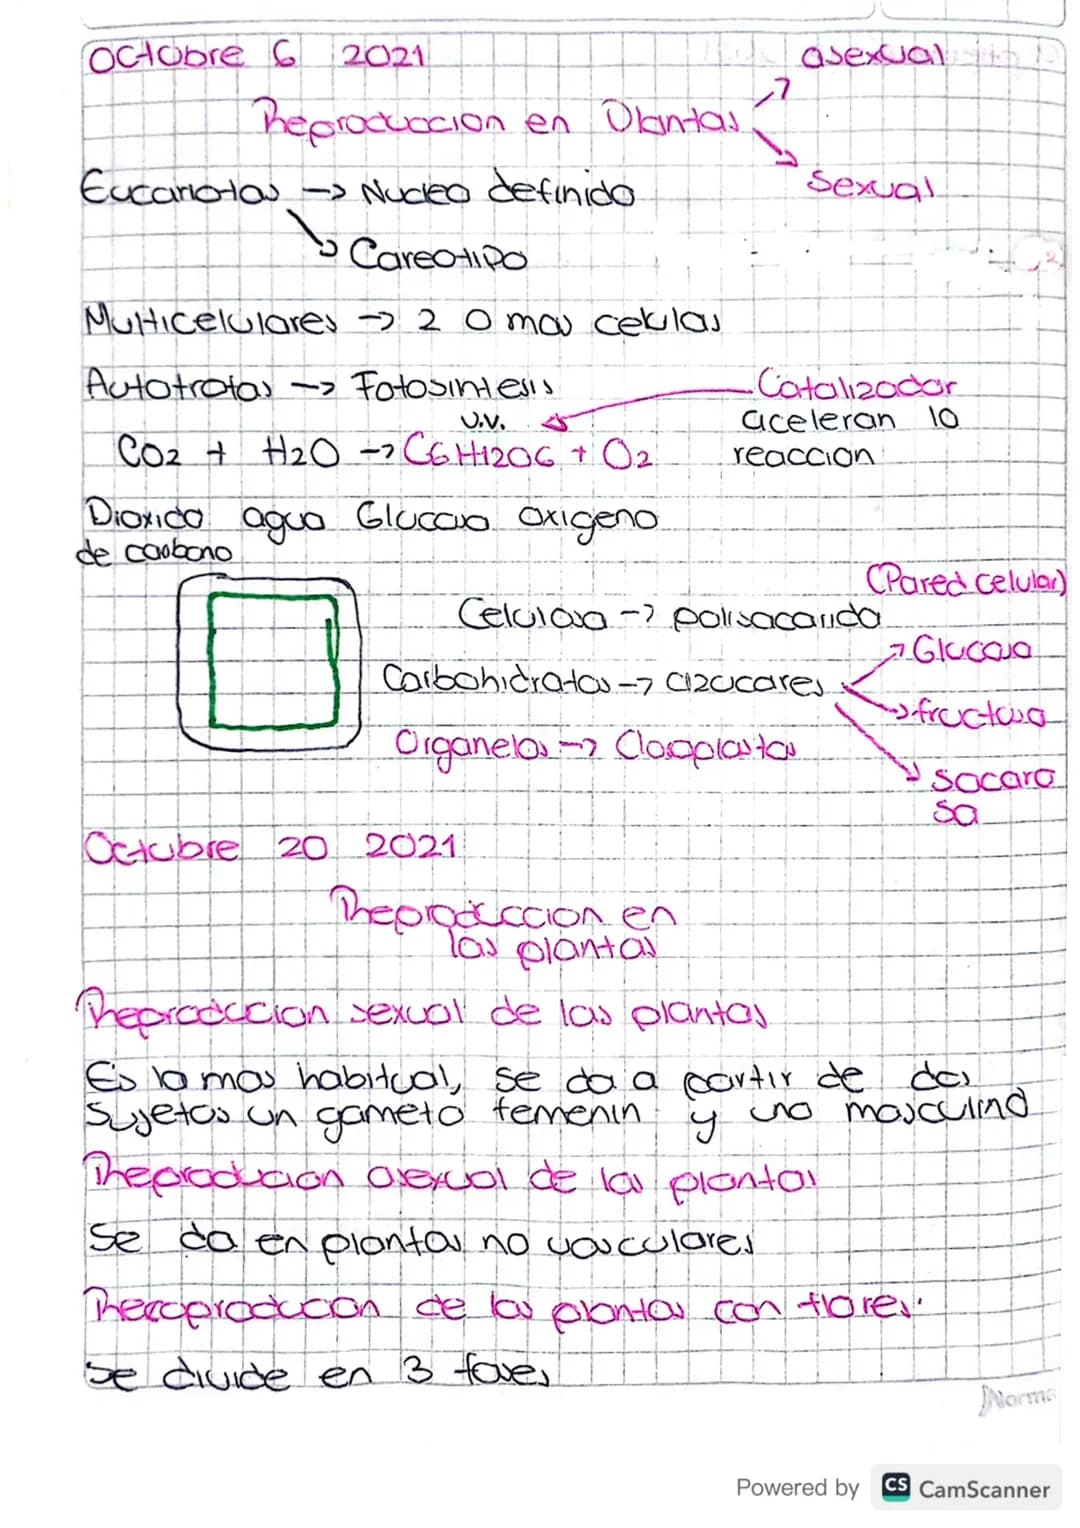 Octubre 6 2021
asexual
Reproduccion en Plantas
Sexual
Eucariotas -> Nucleo definido
Careotipo
Multicelulares -> 2 o mas celulas
Autotrofas -> Fotosintesis
Catalizador
U.V.
aceleran la
CO2 + H2O -> C6H12O6 + O2
reaccion
Dioxido agua Glucosa oxigeno
de carbono
(Pared celular)
Celulosa -> polisacarido
Glucosa
Carbohidratos -> azucares
fructosa
Organelos -> Cloroplastos
Sacaro
sa
Octubre 20 2021
Reproduccion en
las plantas
Reproduccion sexual de las plantas
Es la mas habitual, se da a partir de dos
Sujetos un gameto femenin y uno masculino
Reproducion asexual de las plantas
Se da en plantas no vasculares
Recoproducion de las plantas con flores.
Se divide en 3 fases
Norma
Powered by CS CamScanner